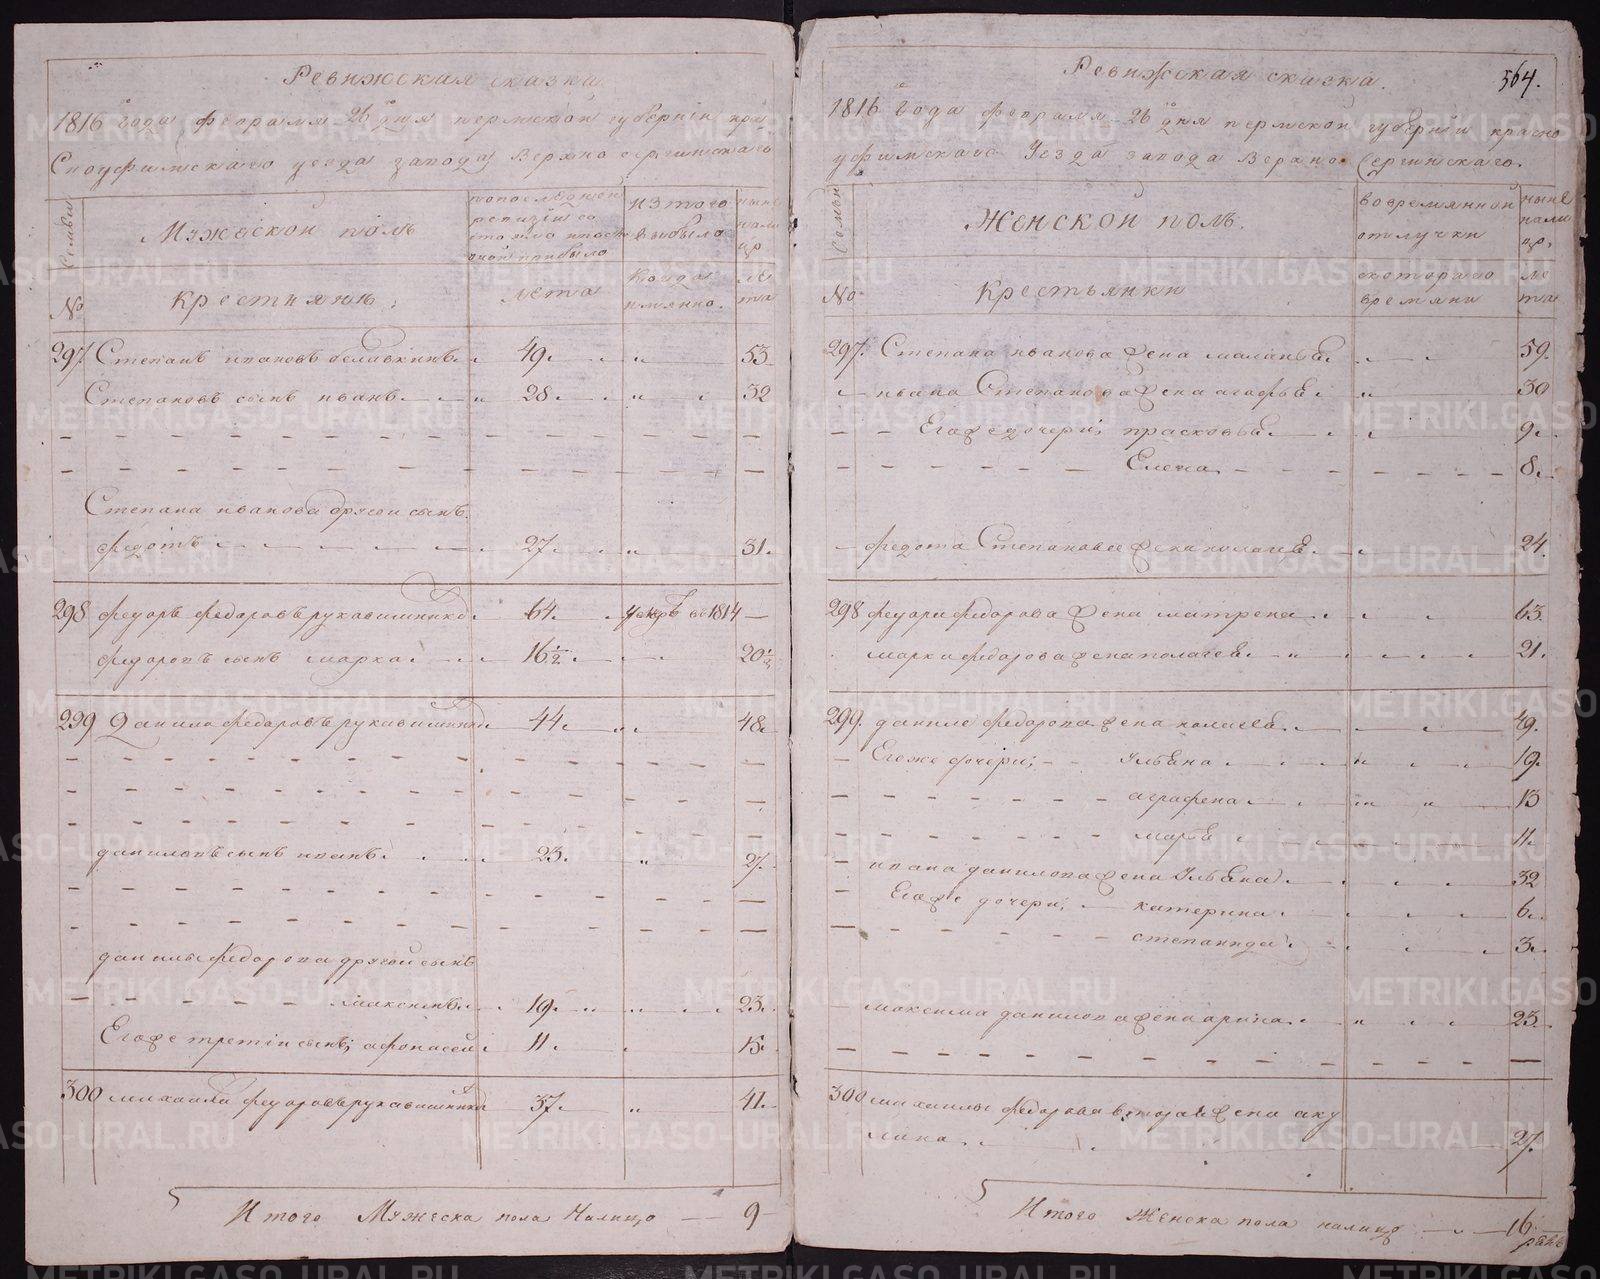 Ревижская сказка
1816го Года февраля 26го дня пермской губернии кра
сноуфимскаго уезда завода Верхно сергинскаго
Семьи
Мужеской полъ
попоследней ревизии состояло и после оной прибыло
Изтого выбыло
ныне налицо
№
Крестьяне
лета
Когда имянно.
лета
297. Степанъ ивановъ белавкинъ 49. 53
Степановъ сынъ иванъ 28 32
Степана иванова другой сынъ
федотъ 27 31.
298 федоръ федоровъ рукавишниковъ 64. умре въ 1814
федоровъ сынъ марка 16 1/2 20 1/2
299 Данило федоровъ рукавишниковъ 44. 48.
даниловъ сынъ иванъ 23. 27.
данилы федорова другой сынъ
максимъ 19. 23.
Егоже третий сынъ; афонасей 11. 15.
300 михайла федоровъ рукавишниковъ 37. 41.
Итого Мужеска пола Налицо 9
Ревижская сказка.
564.
1816го Года февраля 26го дня пермской губернии красно
уфимскаго Уезда завода Верхно Сергинскаго.
Семьи
Женской полъ.
вовремянной отлучки
ныне налицо,
№
Крестьянки
скотораго времяни
лета
297. Степана иванова жена маланья 59.
ивана Степанова жена агафья 30
Егоже дочери; прасковья 9.
Елена 8.
федота Степанова жена палагея 24.
298 федора федорова жена матрена 63.
марки федорова жена палагея 21.
299. даниле федорова жена палагея 49.
Егоже дочери; Ульяна 19.
аграфена 13
марья 11.
ивана данилова жена Ульяна 32
Егоже дочери; катерина 6.
степанида 3.
максима данилова жена арина 23.
300 михаилы федорова вторая жена аку
лина 27.
Итого Женска пола налицо 16.
METRIKI.GASO-URAL.RU